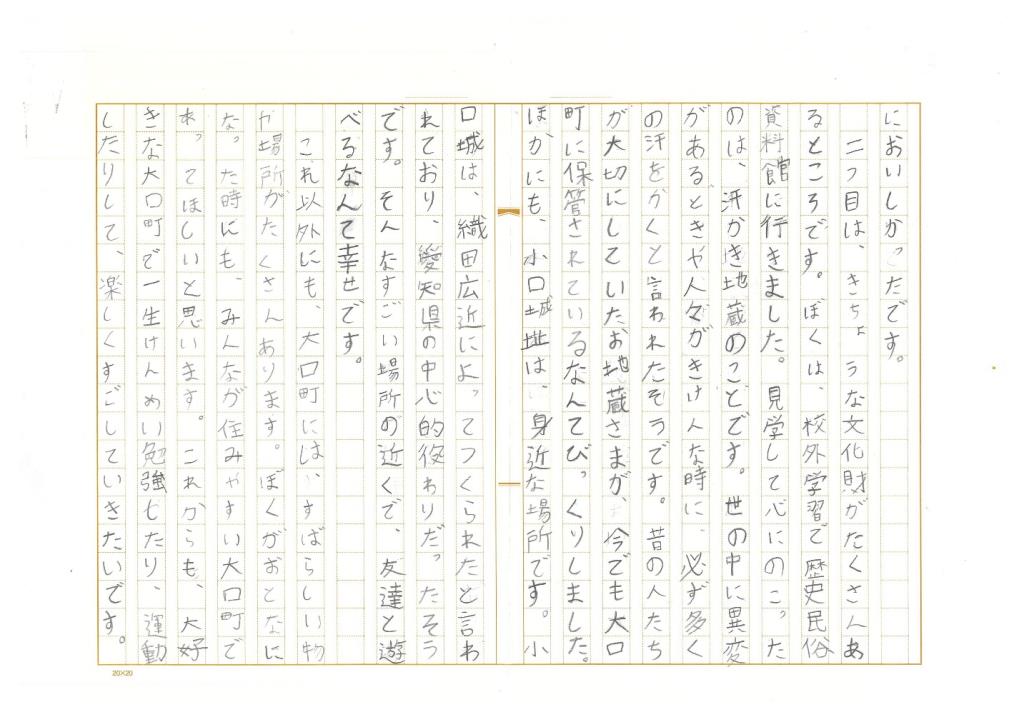 においしかったです。
二つ目は、きちょうな文化財がたくさんあ
るところです。ぼくは、校外学習で歴史民俗
資料館に行きました。見学して心にのこった
のは、汗かき地蔵のことです。世の中に異変
があるときや人々がきけんな時に、必ず多く
の汗をかくと言われたそうです。昔の人たち
が大切にしていたお地蔵さまが、今でも大口
町に保管されているなんてびっくりしました。
ほかにも、小口城址は、身近な場所です。小
口城は、織田広近によってつくられたと言わ
れており、愛知県の中心的役わりだったそう
です。そんなすごい場所の近くで、友達と遊
べるなんて幸せです。
これ以外にも、大口町には、すばらしい物
や場所がたくさんあります。ぼくがおとなに
なった時にも、みんなが住みやすい大口町で
あってほしいと思います。これからも、大好
きな大口町で一生けんめい勉強したり、運動
したりして、楽しくすごしていきたいです。
20×20